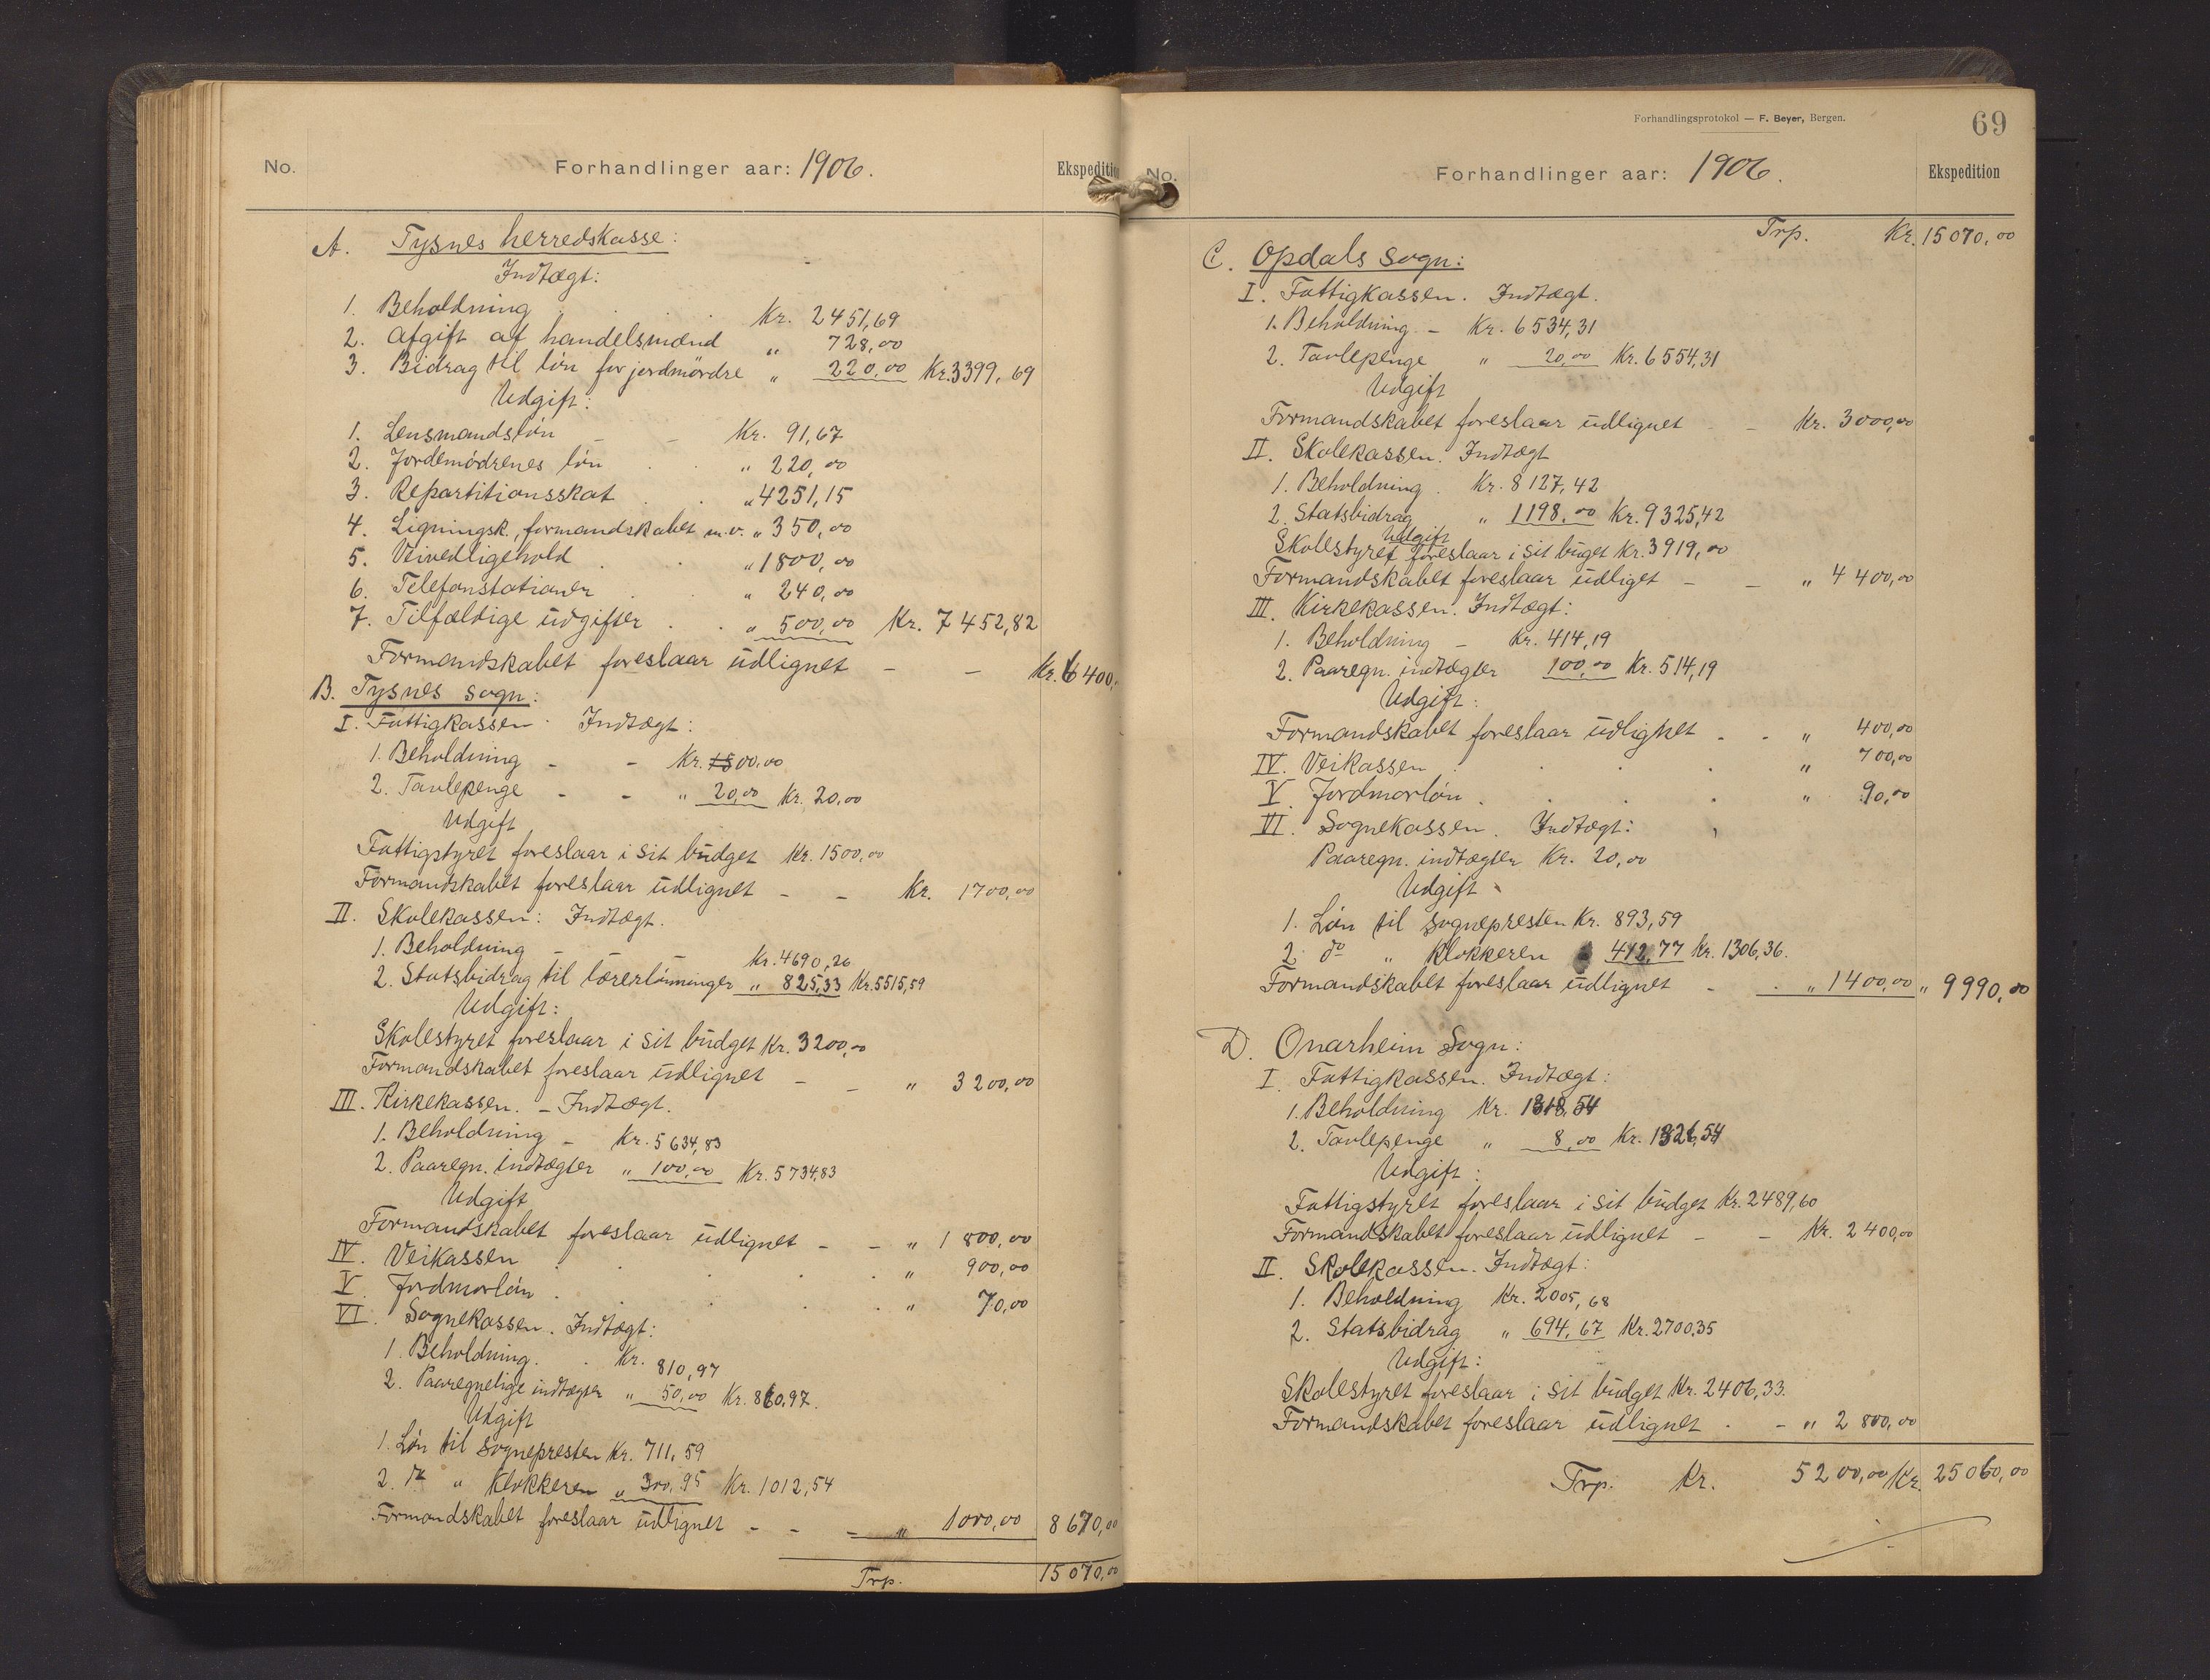 No. Forhandlinger aar: 1906. Ekspedition
A. Tysnes herredskasse:
Indtægt:
1. Beholdning . . . Kr. 2451,69
2. Afgift af handelsmænd " 728,00
3. Bidrag til løn for jordmødre " 220,00 Kr. 3399,69
Udgift:
1. Lensmandsløn - - Kr. 91,67
2. Jordemødrenes løn . . " 220,00
3. Repartitionsskat . . " 4251,15
4. Ligningsk., formandskabet m.v. " 350,00
5. Veivedligehold . . " 1800,00
6. Telefonstationer . . " 240,00
7. Tilfældige udgifter . . " 500,00 Kr. 7452,82
Formandskabet foreslaar udlignet - - Kr. 6400,
B. Tysnes sogn:
I. Fattigkassen. Indtægt:
1. Beholdning - - Kr. 00,00
2. Tavlepenge - - " 20,00 Kr. 20,00
Udgift
Fattigstyret foreslaar i sit budget Kr. 1500,00
Formandskabet foreslaar udlignet - - Kr. 1700,00
II. Skolekassen: Indtægt.
1. Beholdning - Kr. 4690,26
2. Statsbidrag til lærerlønninger " 825,33 Kr. 5515,59
Udgift:
Skolestyret foreslaar i sit budget Kr. 3200,00
Formandskabet foreslaar udlignet - - " 3200,00
III. Kirkekassen. - Indtægt.
1. Beholdning - Kr. 5634,83
2. Paaregn. indtægter " 100,00 Kr. 5734,83
Udgift
Formandskabet foreslaar udlignet - - " 1800,00
IV. Veikassen . . . . " 900,00
V. Jordmorløn . . . . " 70,00
VI. Sognekassen. Indtægt:
1. Beholdning. . Kr. 810,97
2. Paaregnelige indtægter " 50,00 Kr. 860,97.
Udgift
1. Løn til sognepresten Kr. 711,59
2. do " klokkeren " 300,95 Kr. 1012,54
Formandskabet foreslaar udlignet - - - " 1000,00 8670,00
Trp. 15070,00
Forhandlingsprotokol — F. Beyer, Bergen.
69
No. Forhandlinger aar: 1906. Ekspedition
Trp. Kr. 15070,00
C. Opdals sogn:
I. Fattigkassen. Indtægt.
1. Beholdning - Kr. 6534,31
2. Tavlepenge " 20,00 Kr. 6554,31
Udgift
Formandskabet foreslaar udlignet - - Kr. 3000,00
II. Skolekassen. Indtægt
1. Beholdning . Kr. 8127,42
2. Statsbidrag " 1198,00 Kr. 9325,42
Udgift
Skolestyret foreslaar i sit buget Kr. 3919,00
Formandskabet foreslaar udliget - - " 4400,00
III. Kirkekassen. Indtægt:
1. Beholdning - Kr. 414,19
2. Paaregn. indtægter 100,00 Kr. 514,19
Udgift:
Formandskabet foreslaar udlignet - - " 400,00
IV. Veikassen . . . " 700,00
V. Jordmorløn . . . " 90,00
VI. Sognekassen. Indtægt:
Paaregn. indtægter Kr. 20,00
Udgift
1. Løn til sognepresten Kr. 893,59
2. do " klokkeren 412,77 Kr. 1306,36.
Formandskabet foreslaar udlignet - . " 1400,00 " 9990,00
D. Onarheim Sogn:
I. Fattigkassen. Indtægt:
1. Beholdning Kr. 1318,54
2. Tavlepenge " 8,00 Kr. 1326,54
Udgift:
Fattigstyret foreslaar i sit budget Kr. 2489,60
Formandskabet foreslaar udlignet - - Kr. 2400,00
II. Skolekassen. Indtægt:
1. Beholdning Kr. 2005,68
2. Statsbidrag " 694,67 Kr. 2700,35
Udgift:
Skolestyret foreslaar i sit budget Kr. 2406,33.
Formandskabet foreslaar udlignet . - " 2800,00
Trp. Kr. 5200,00 Kr. 25060,00